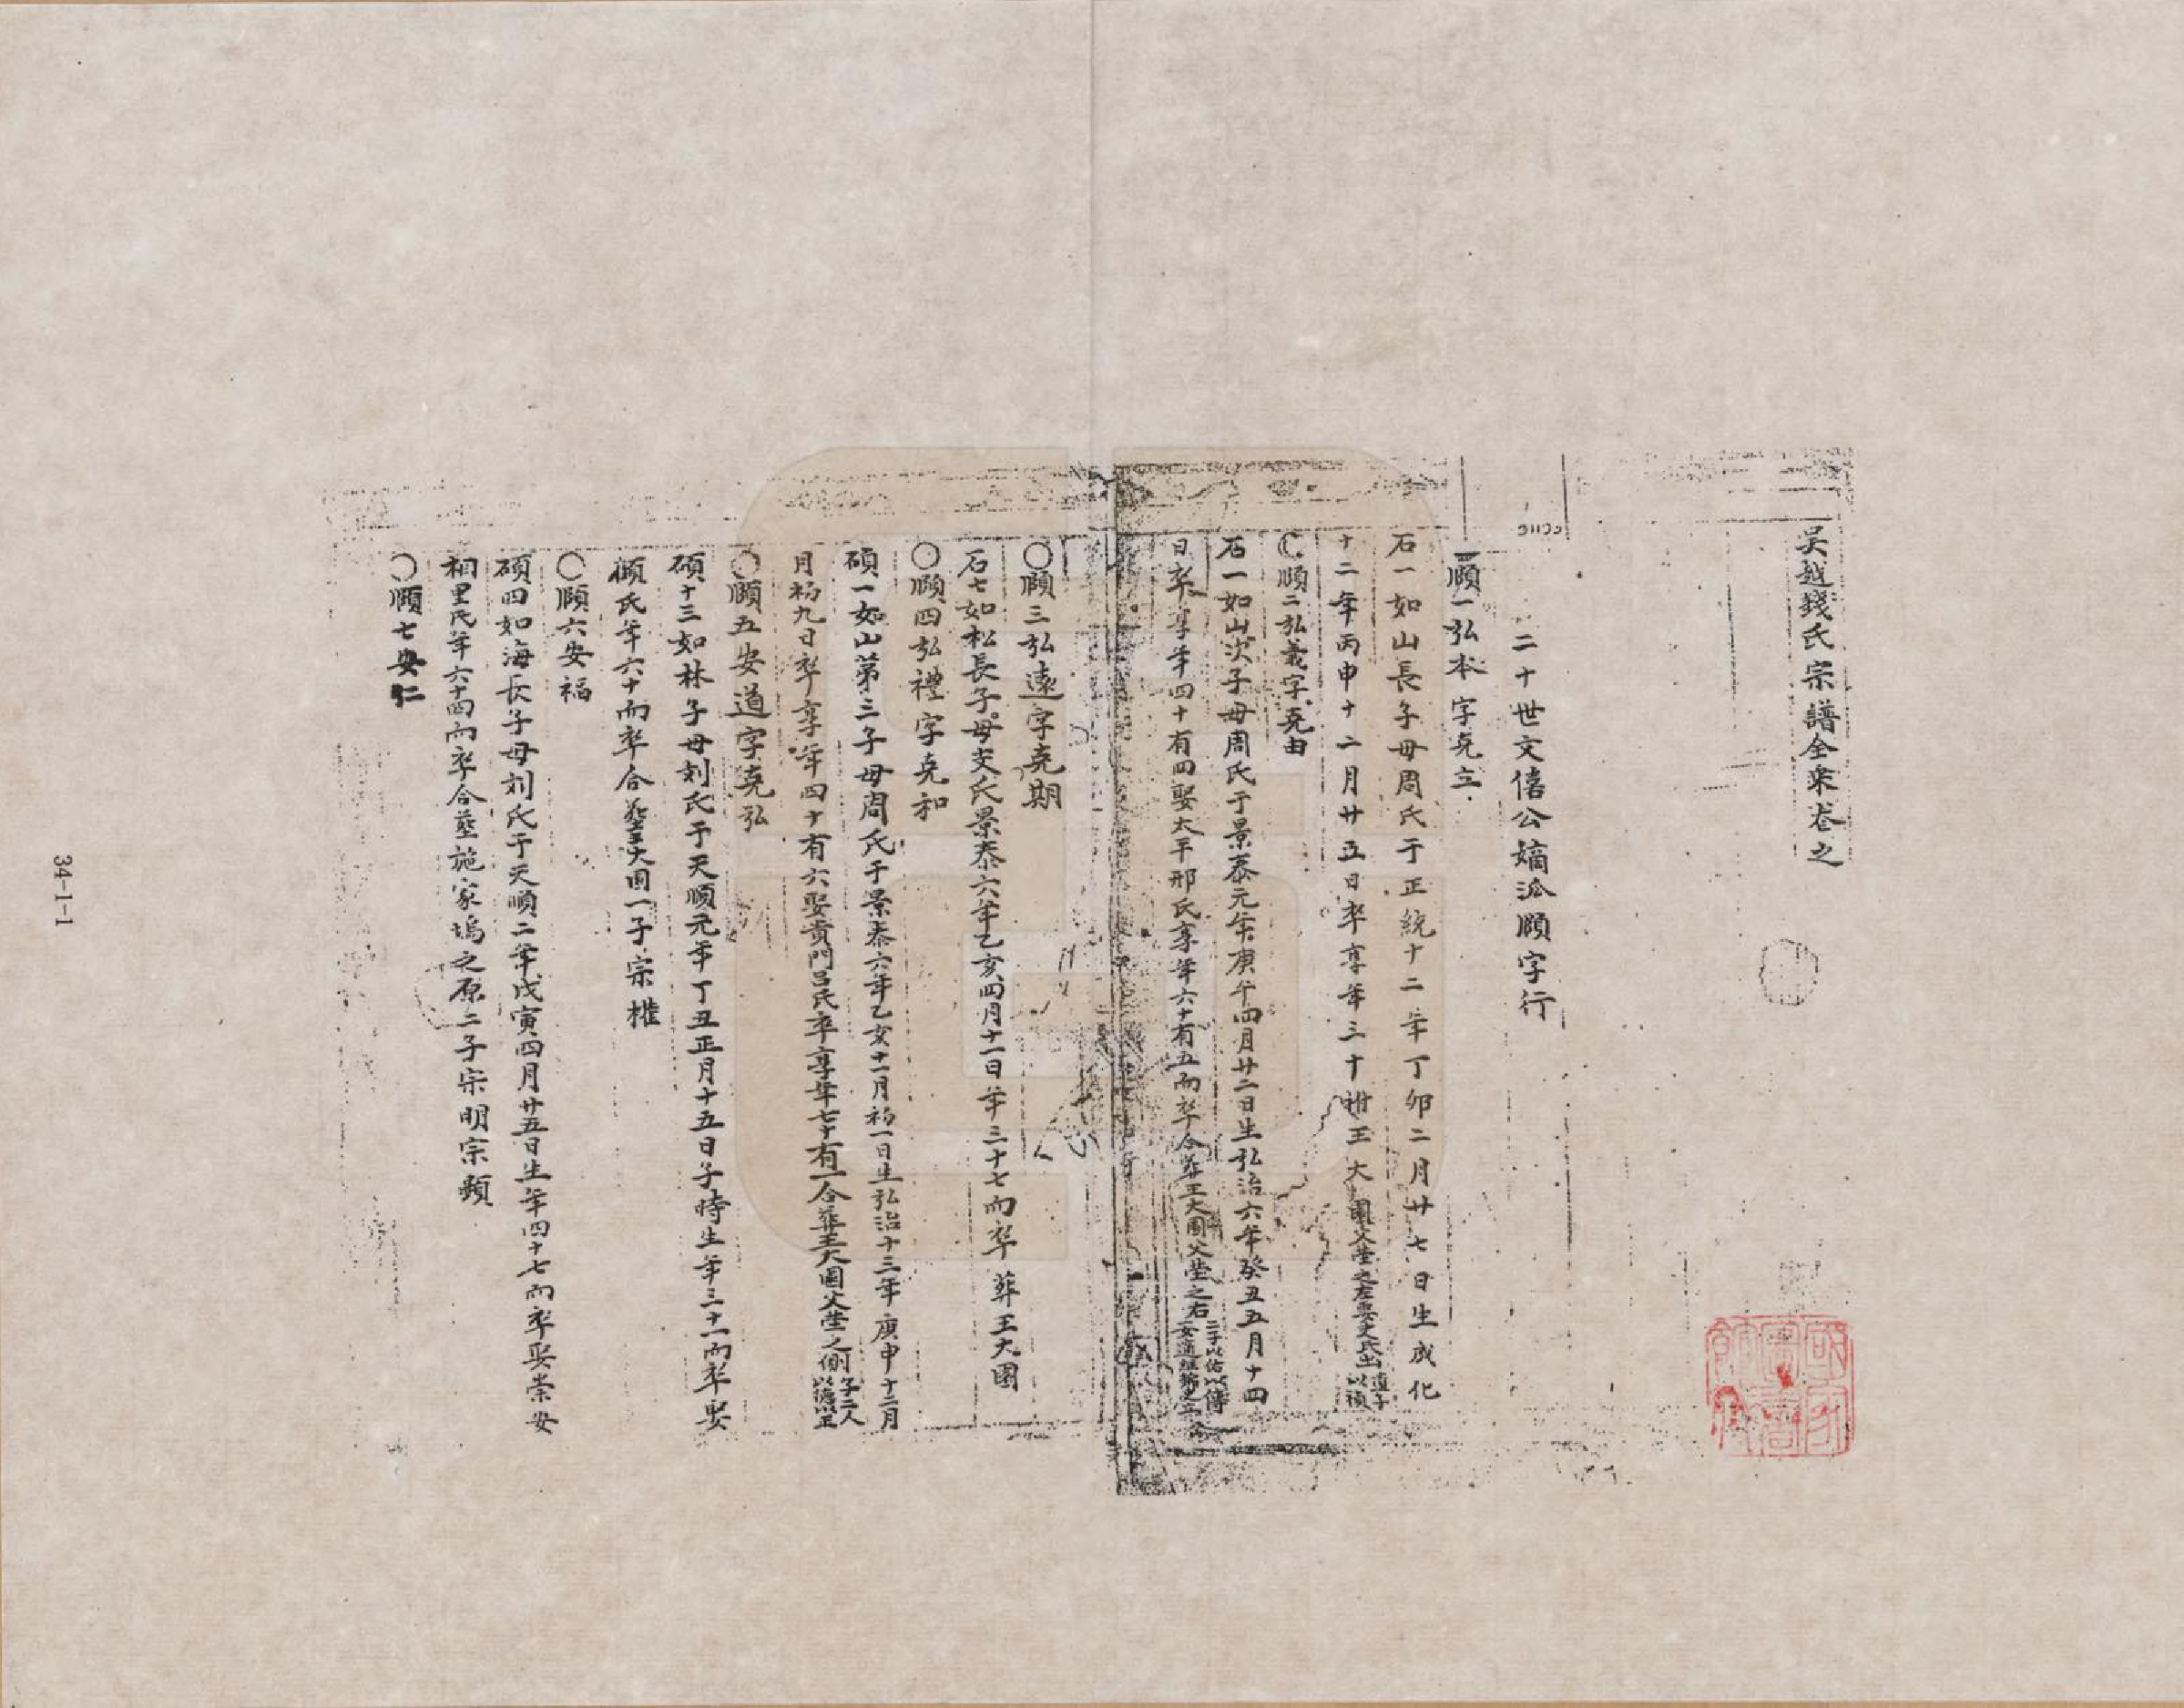 吳越錢氏宗譜全來卷之
二十世文僖公嫡派頤字行
頤一弘本字堯立
石一如山長子母周氏于正統十二年丁卯二月廿七日生成化
十二年丙申十二月廿五日卒享年三十祔王大園父塋之左娶史氏出遺子以禎
〇順二弘義字堯由
石一如山次子母周氏于景泰元年庚午四月廿二日生弘治六年癸丑五月十四
日卒享年四十有四娶太平邢氏享年六十有五而卒合葬王大園父塋之右二子以佑以傳女適
〇頤三弘遠字堯期
石七如松長子母史氏景泰六年乙亥四月十一日年三十七而卒葬王大園
〇頤四弘禮字堯和
碩一如山第三子母周氏于景泰六年乙亥十一月初一日生弘治十三年庚申十二月
月初九日卒享年四十有六娶貴門呂氏卒享年七十有一合葬王大園父塋之側子二人以德以正
〇頤五安道字堯弘
碩十三如林子母刘氏于天順元年丁丑正月十五日子時生年三十一而卒娶
顧氏年六十而卒合塟王大園一子宗權
〇頤六安福
碩四如海長子母刘氏于天順二年戊寅四月廿五日生年四十七而卒娶崇安
相里氏年六十四而卒合塟施家塢之原二子宗明宗顯
〇頤七安仁
34-1-1